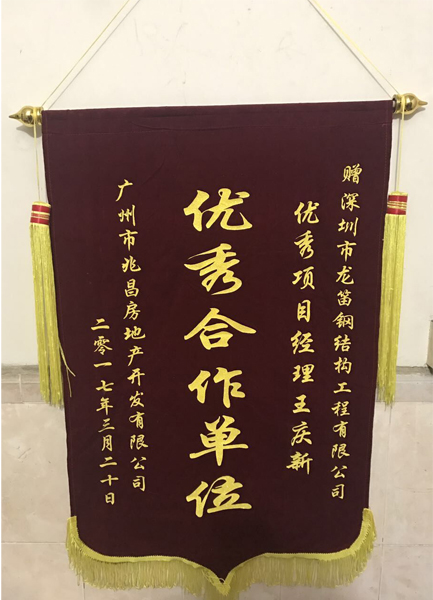 赠深圳市龙笛钢结构工程有限公司
优秀项目经理王庆新
优秀合作单位
广州市兆昌房地产开发有限公司
二零一七年三月二十日